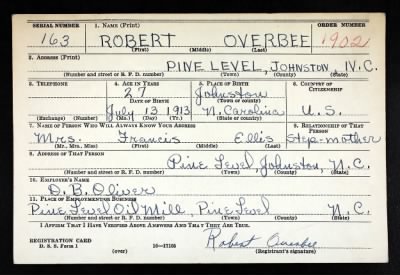 SERIAL NUMBER 1. NAME (Print) ORDER NUMBER
163 ROBERT OVERBEE 1902
(First) (Middle) (Last)
2. ADDRESS (Print)
PINE LEVEL, JOHNSTON, N.C.
(Number and street or R. F. D. number) (Town) (County) (State)
3. TELEPHONE 4. AGE IN YEARS 5. PLACE OF BIRTH 6. COUNTRY OF CITIZENSHIP
27 Johnston
DATE OF BIRTH (Town or county)
July 12 1913 N. Carolina U.S.
(Exchange) (Number) (Mo.) (Day) (Yr.) (State or country)
7. NAME OF PERSON WHO WILL ALWAYS KNOW YOUR ADDRESS 8. RELATIONSHIP OF THAT PERSON
Mrs. Francis Ellis Step-mother
(Mr., Mrs., Miss) (First) (Middle) (Last)
9. ADDRESS OF THAT PERSON
Pine Level, Johnston, N.C.
(Number and street or R. F. D. number) (Town) (County) (State)
10. EMPLOYER'S NAME
D. B. Oliver
11. PLACE OF EMPLOYMENT OR BUSINESS
Pine Level Oil Mill, Pine Level N.C.
(Number and street or R. F. D. number) (Town) (County) (State)
I AFFIRM THAT I HAVE VERIFIED ABOVE ANSWERS AND THAT THEY ARE TRUE.
REGISTRATION CARD
D. S. S. Form 1 16—17105 Robert Overbee
(over) (Registrant's signature)